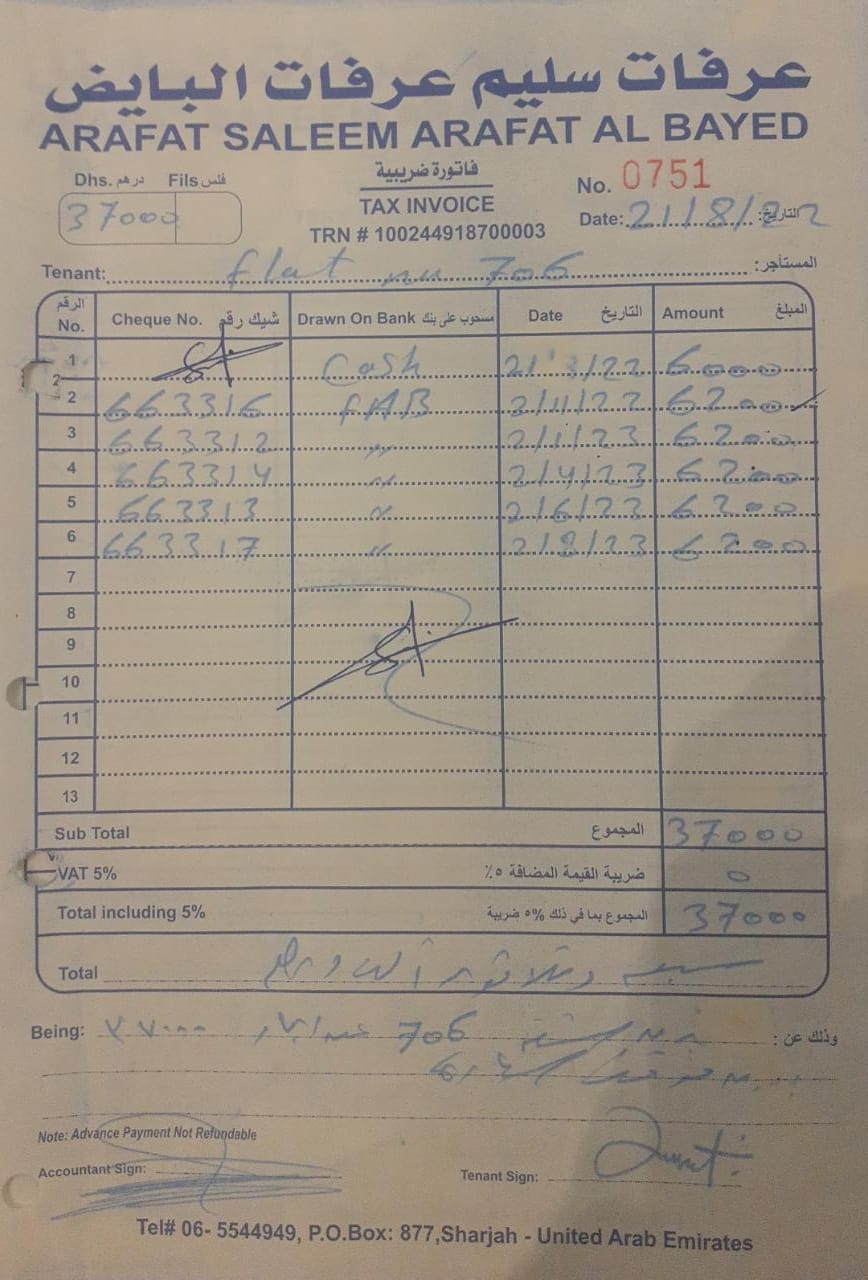 عرفات سليم عرفات البايض
ARAFAT SALEEM ARAFAT AL BAYED
Dhs. درهم Fils فلس
37000
فاتورة ضريبية
TAX INVOICE
TRN # 100244918700003
No. 0751
Date: 21/8/22 التاريخ:
Tenant: flat no 706 المستأجر:
الرقم No. Cheque No. شيك رقم Drawn On Bank مسحوب على بنك Date التاريخ Amount المبلغ
1 Cash 21/8/22 6000
2 663316 FAB 2/11/22 6200
3 663312 " 2/1/23 6200
4 663314 " 2/4/23 6200
5 663313 " 2/6/23 6200
6 663317 " 2/8/23 6200
7
8
9
10
11
12
13
Sub Total المجموع 37000
VAT 5% ضريبة القيمة المضافة ٥٪ 0
Total including 5% المجموع بما في ذلك ٥% ضريبة 37000
Total
Being: 706 ٣٧٠٠٠ وذلك عن:
Note: Advance Payment Not Refundable
Accountant Sign:
Tenant Sign:
Tel# 06- 5544949, P.O.Box: 877,Sharjah - United Arab Emirates